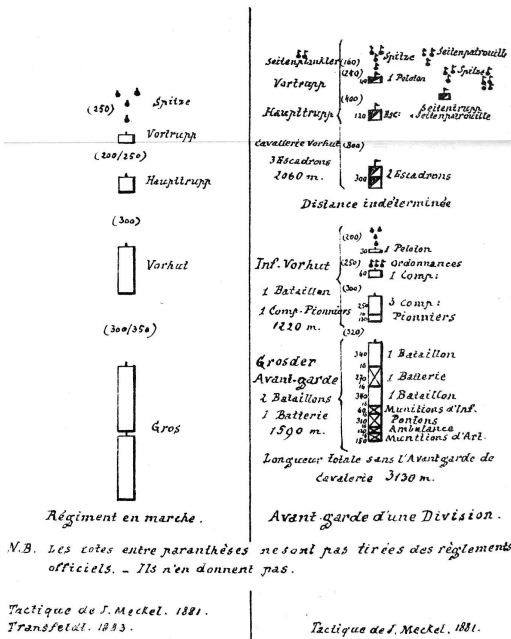 (250)
Spitze
Vortrupp
(200/250)
Haupttrupp
(300)
Vorhut
(300/350)
Gros
Régiment en marche.
Seitenplänkler
(160)
Spitze
Seitenpatrouille
(240)
Vortrupp
40
1 Peloton
Spitze
(400)
Haupttrupp
120
Esc:
Seitentrupp
Seitenpatrouille
Cavallerie Vorhut
(800)
3 Escadrons
2060 m.
300
2 Escadrons
Distance indéterminée
(200)
30
1 Peloton
Inf. Vorhut
(250)
Ordonnances
60
1 Comp:
1 Bataillon
(300)
1 Comp. Pionniers
250
3 Comp:
1220 m.
Pionniers
(320)
Gros der
340
1 Bataillon
Avant-garde
270
1 Batterie
2 Bataillons
340
1 Bataillon
1 Batterie
Munitions d'Inf.
1590 m.
310
Pontons
Ambulance
150
Munitions d'Art.
Longueur totale sans l'Avantgarde de
Cavalerie 3130 m.
Avant-garde d'une Division.
N.B. Les cotes entre paranthèses ne sont pas tirées des règlements
officiels. _ Ils n'en donnent pas.
Tactique de J. Meckel. 1881.
Transfeldt. 1883.
Tactique de J. Meckel. 1881.